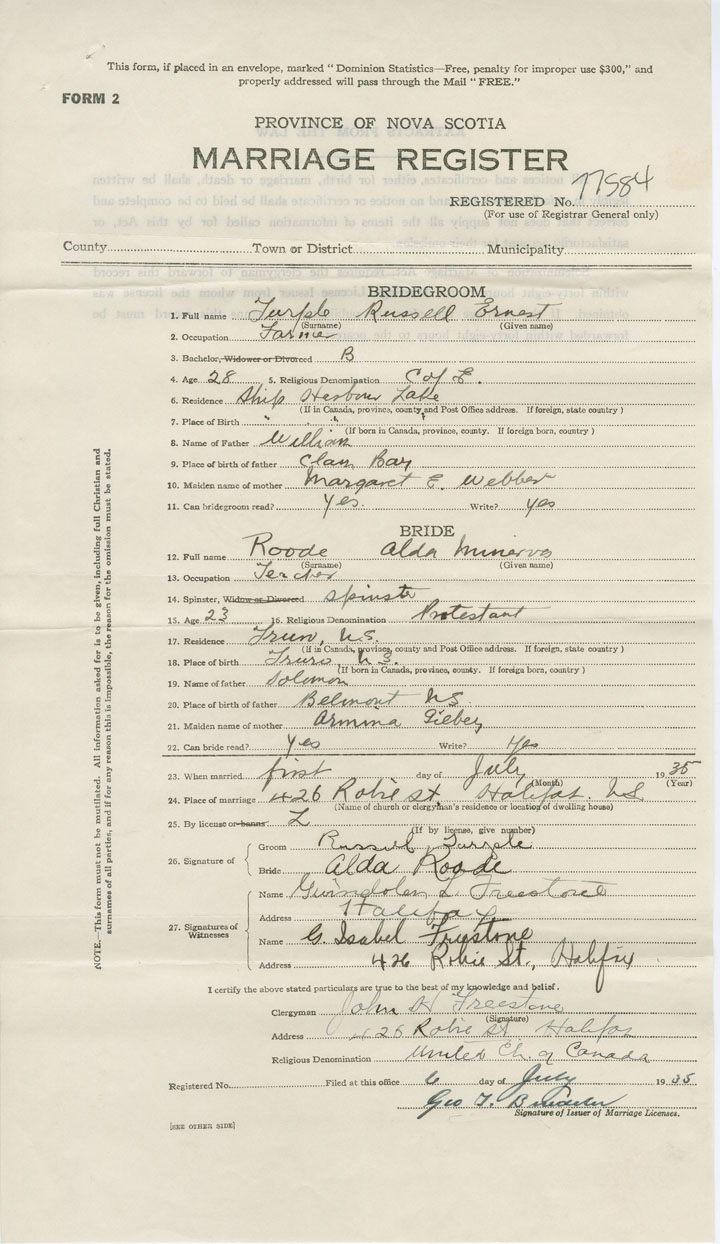 This form, if placed in an envelope, marked "Dominion Statistics—Free, penalty for improper use $300," and
properly addressed will pass through the Mail "FREE."
FORM 2
PROVINCE OF NOVA SCOTIA
MARRIAGE REGISTER
REGISTERED No. 77584
(For use of Registrar General only)
County Town or District Municipality
BRIDEGROOM
1. Full name Turple Russell Ernest
(Surname) (Given name)
2. Occupation Farmer
3. Bachelor, Widower or Divorced B
4. Age 28 5. Religious Denomination C of E.
6. Residence Ship Harbour Lake
(If in Canada, province, county and Post Office address. If foreign, state country)
7. Place of Birth " " "
(If born in Canada, province, county. If foreign born, country)
8. Name of Father William
9. Place of birth of father Clam Bay
10. Maiden name of mother Margaret E. Webber
11. Can bridegroom read? Yes. Write? yes
BRIDE
12. Full name Roode Alda Minerva
(Surname) (Given name)
13. Occupation Teacher
14. Spinster, Widow or Divorced Spinster
15. Age 23 16. Religious Denomination Protestant
17. Residence Truro, N.S.
(If in Canada, province, county and Post Office address. If foreign, state country)
18. Place of birth Truro N.S.
(If born in Canada, province, county. If foreign born, country)
19. Name of father Solomon
20. Place of birth of father Belmont NS
21. Maiden name of mother Armina
22. Can bride read? Yes Write? Yes
23. When married first day of July 1935
(Month) (Year)
24. Place of marriage 426 Robie St. Halifax. NS
(Name of church or clergyman's residence or location of dwelling house)
25. By license or banns L
(If by license, give number)
26. Signature of Groom Russell Turple
Bride Alda Roode
27. Signatures of Witnesses Name L Freestone
Address Halifax
Name G. Isabel Freestone
Address 426 Robie St., Halifax
I certify the above stated particulars are true to the best of my knowledge and belief.
Clergyman John H Freestone
(Signature)
Address 426 Robie St Halifax
Religious Denomination United Ch. of Canada
Registered No. Filed at this office 6 day of July 1935
Geo T.
Signature of Issuer of Marriage Licenses.
[SEE OTHER SIDE]
NOTE.—This form must not be mutilated. All information asked for is to be given, including full Christian and
surnames of all parties, and if for any reason this is impossible, the reason for the omission must be stated.